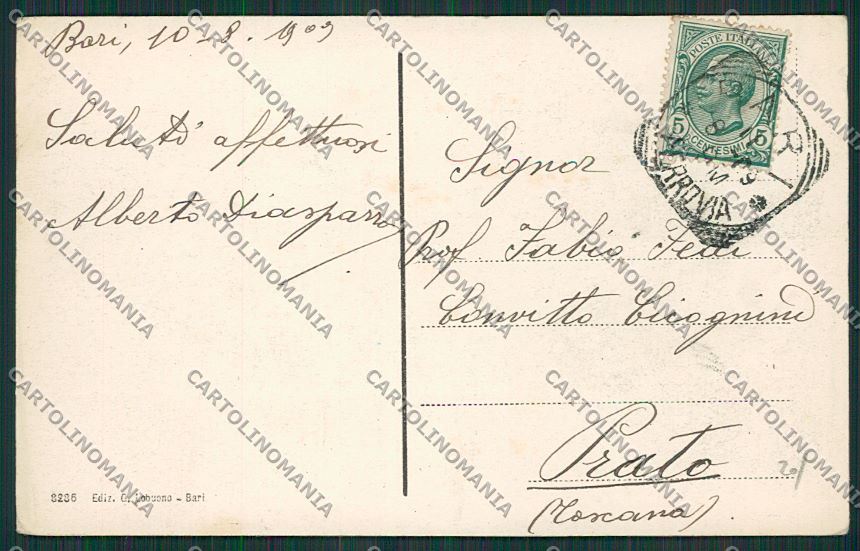 Bari, 10-8-1909
Saluti affettuosi
Alberto Diasparro
POSTE ITALIANE
5 5
CENTESIMI
FERROVIA
Signor
Prof. Fabio Fedi
Convitto Cicognini
Prato
(Toscana)
8286 Ediz. G. Lobuono - Bari
CARTOLINOMANIA